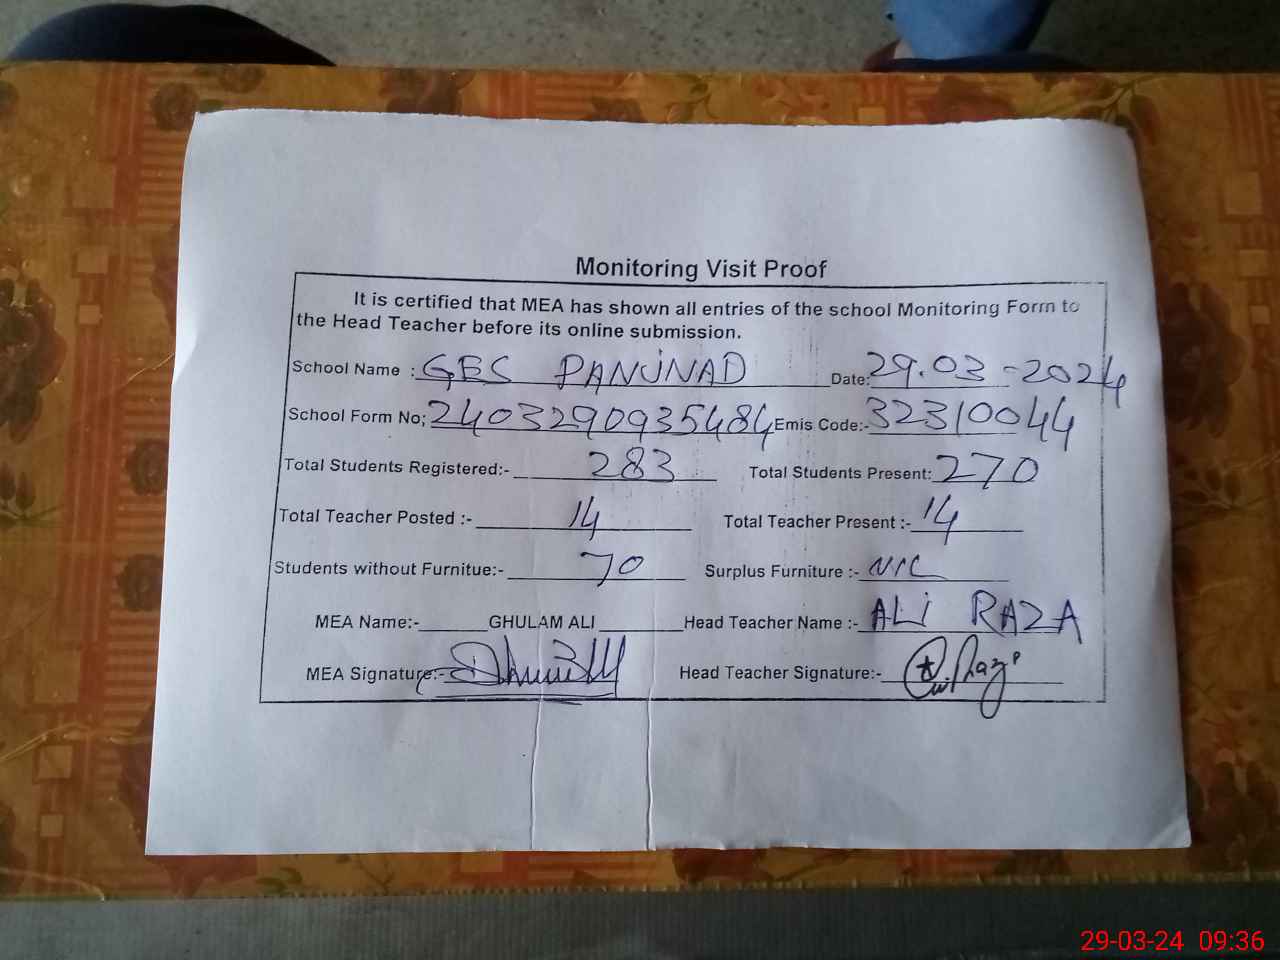 Monitoring Visit Proof
It is certified that MEA has shown all entries of the school Monitoring Form to
the Head Teacher before its online submission.
School Name : GES PANJNAD Date: 29.03-2024
School Form No; 2403290935484 Emis Code:- 32310044
Total Students Registered:- 283 Total Students Present: 270
Total Teacher Posted :- 14 Total Teacher Present :- 14
Students without Furnitue:- 70 Surplus Furniture :- NIL
MEA Name:- GHULAM ALI Head Teacher Name :- ALI RAZA
MEA Signature:- Head Teacher Signature:-
29-03-24 09:36